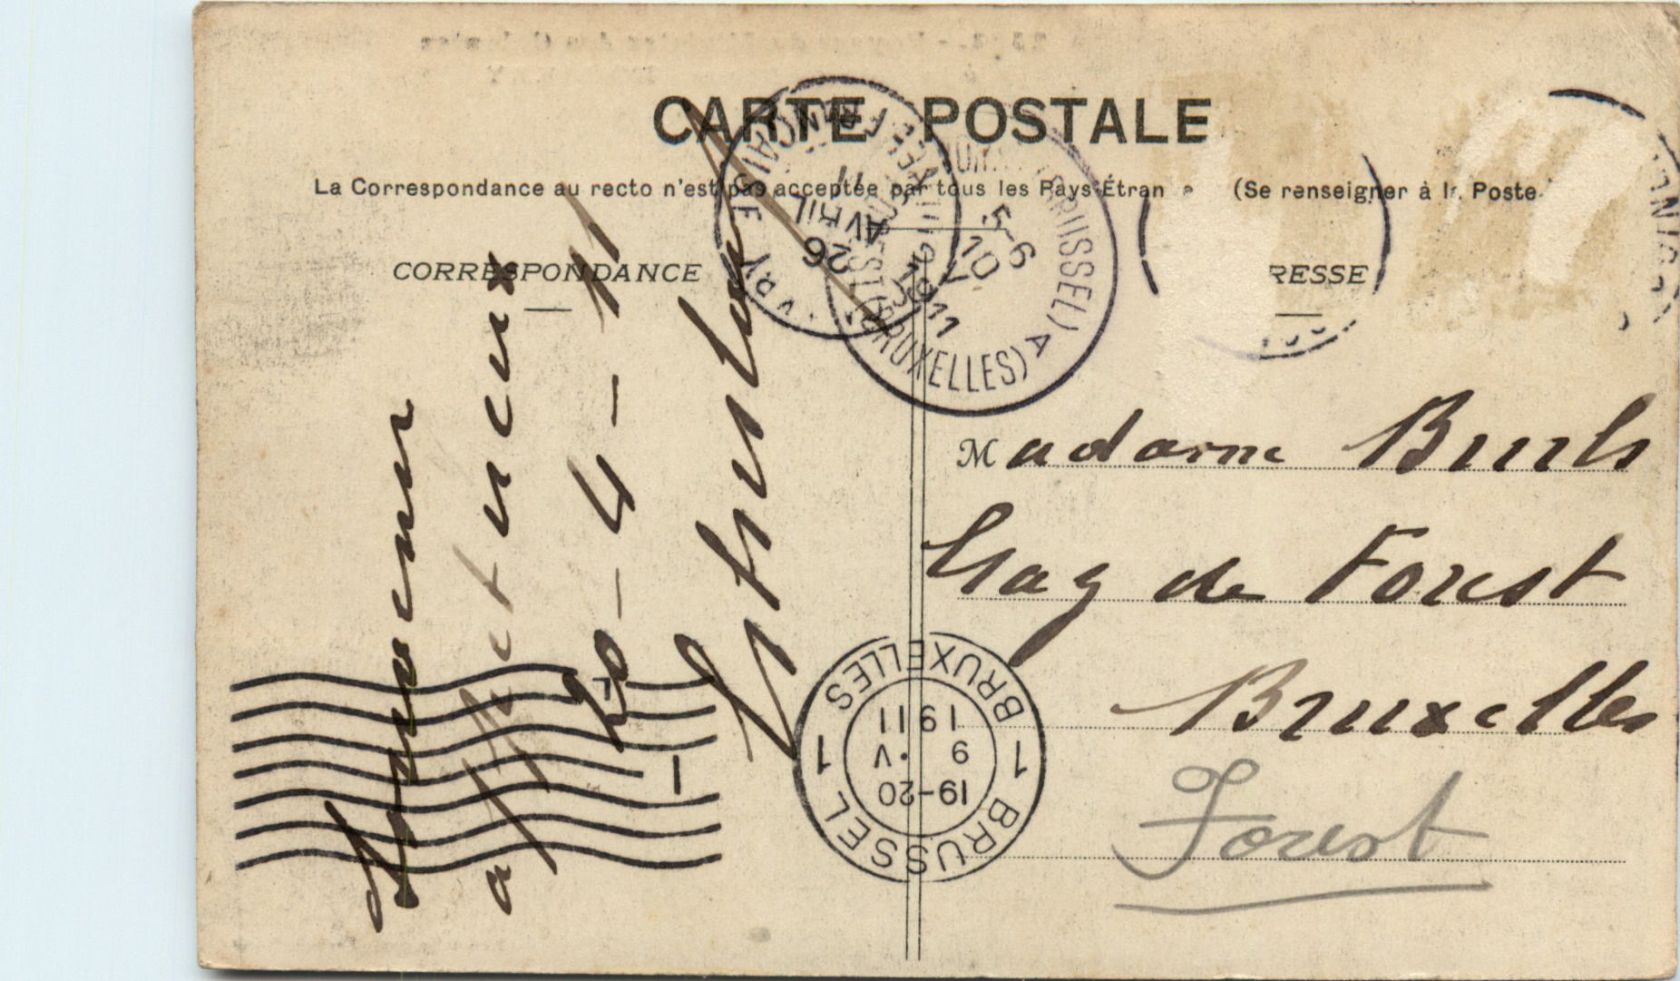 CARTE POSTALE
La Correspondance au recto n'est pas acceptée par tous les Pays Étran (Se renseigner à la Poste
CORRESPONDANCE
RESSE
Souvenir
affectueux
20-4-11
Madame Buuls
de Forest
Bruxelles
Forest
VRY FRANÇAISE
26
AVRIL
11
FOREST (BRUXELLES)
(BRUSSEL) A
5-6
10 V
1911
1 BRUXELLES 1 BRUSSEL
19-20
9 V
1911